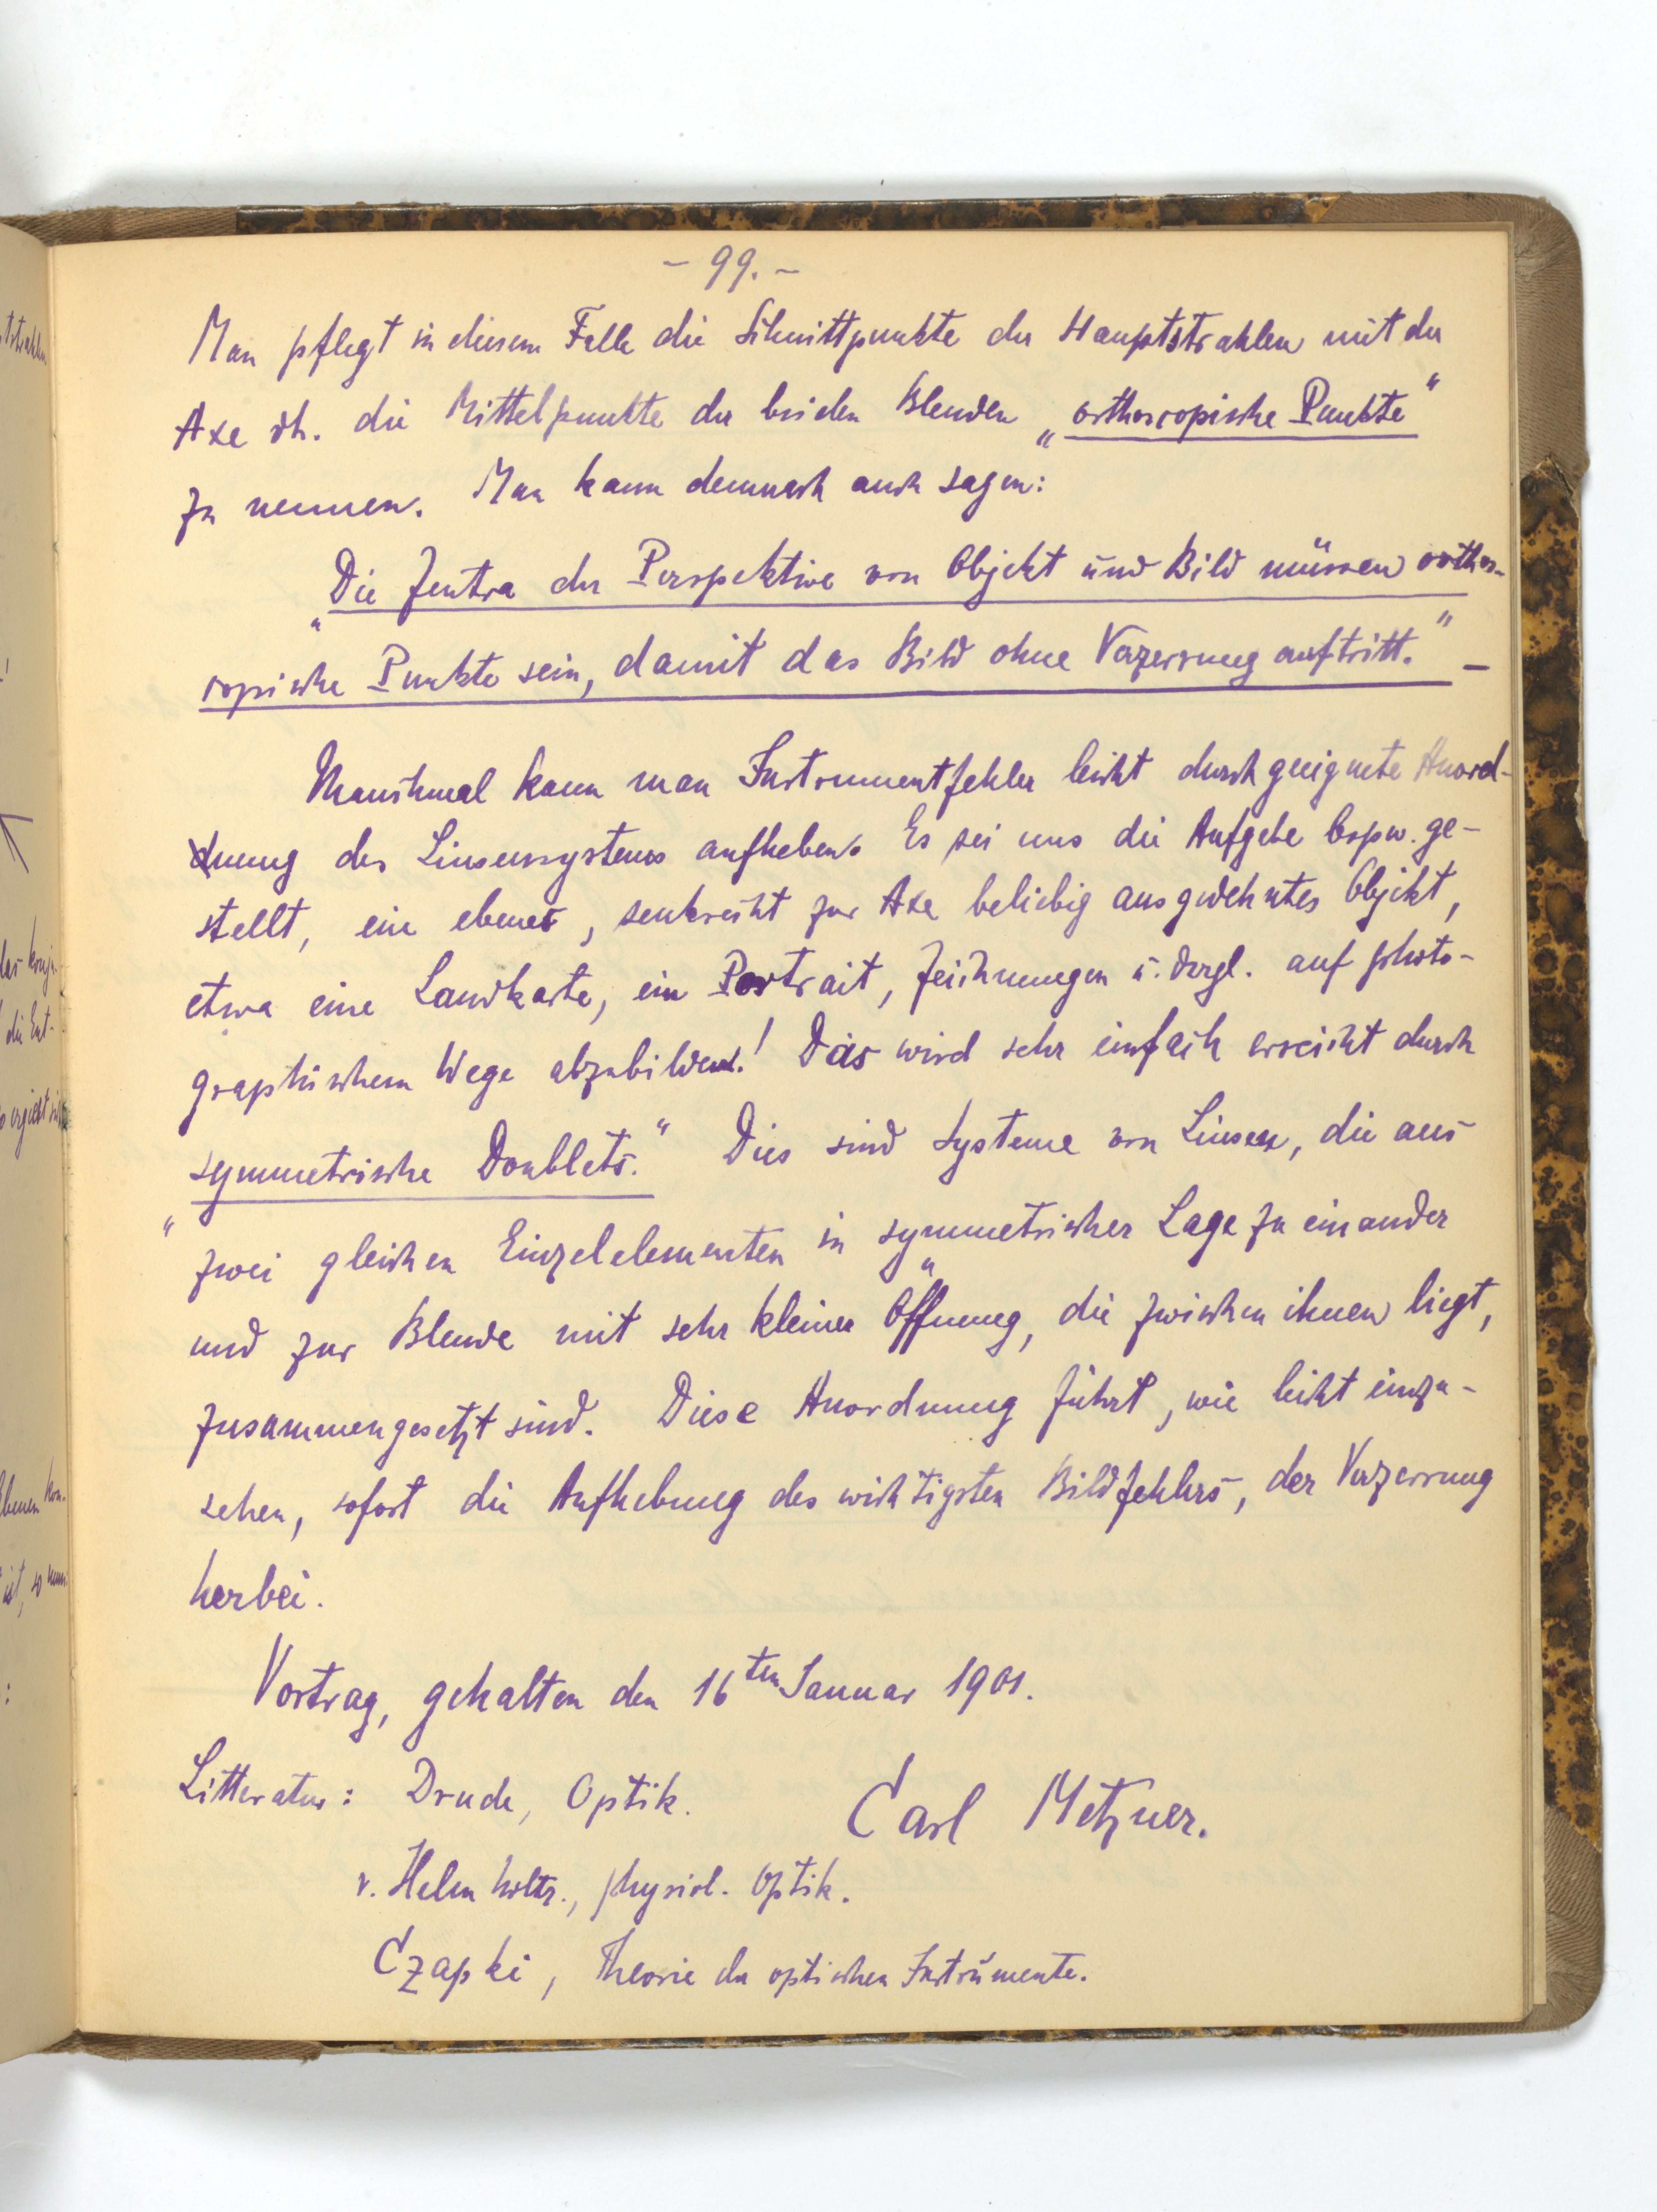 - 99. -
Man pflegt in diesem Falle die Schnittpunkte der Hauptstrahlen mit der
Axe dh. die Mittelpunkte der beiden Blenden „orthoscopische Punkte"
zu nennen. Man kann demnach auch sagen:
„Die Zentra der Perspektive von Objekt und Bild müssen orthos-
copische Punkte sein, damit das Bild ohne Verzerrung auftritt." -
Manchmal kann man Instrumentfehler leicht durch geeignete Anord-
nung des Linsensystems aufheben. Es sei uns die Aufgabe bspw. ge-
stellt, ein ebenes, senkrecht zur Axe beliebig ausgedehntes Objekt,
etwa eine Landkarte, ein Portrait, Zeichnungen u. dergl. auf photo-
graphischem Wege abzubilden! Das wird sehr einfach erreicht durch
„symmetrische Doublets." Dies sind Systeme von Linsen, die aus
zwei gleichen Einzelelementen in symmetrischer Lage zu einander
und zur Blende mit sehr kleiner Öffnung, die zwischen ihnen liegt,
zusammengesetzt sind. Diese Anordnung führt, wie leicht einzu-
sehen, sofort die Aufhebung des wichtigsten Bildfehlers, der Verzerrung
herbei.
Vortrag, gehalten den 16ten Januar 1901.
Litteratur: Drude, Optik.
Carl Metzner.
v. Helmholtz., physiol. Optik.
Czapki, Theorie der optischen Instrumente.